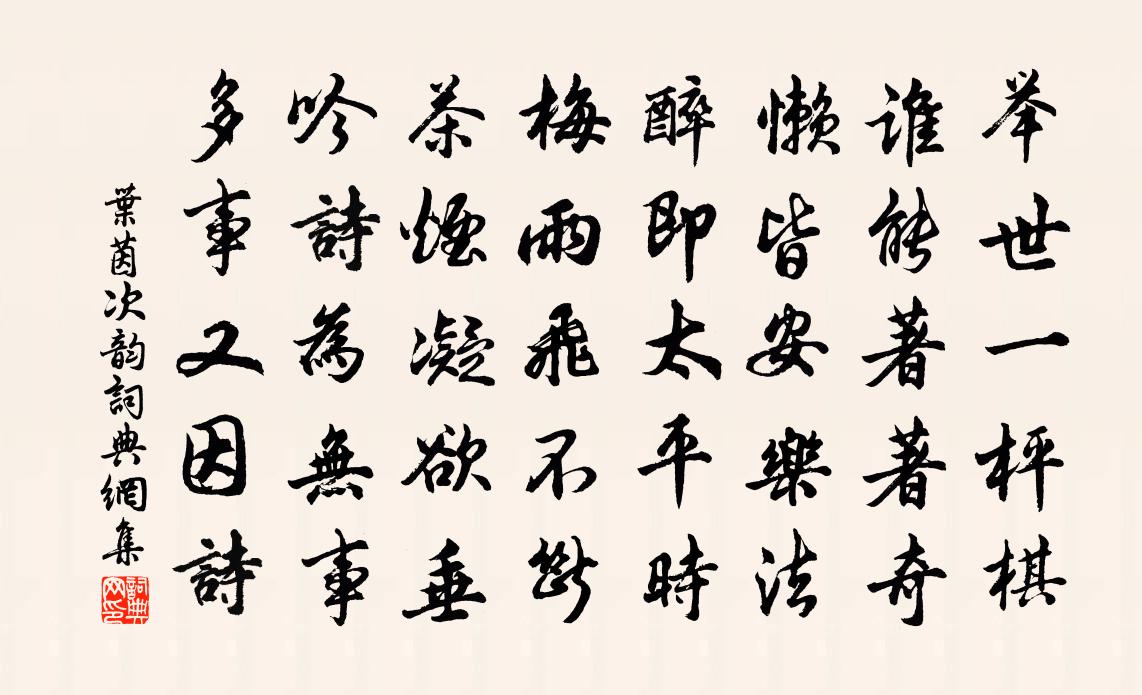 举世一枰棋
谁能著著奇
懒皆安樂法
醉即太平時
梅雨飛不斷
茶煙凝欲垂
吟詩為無事
多事又因詩
葉茵次韵詞典網集
詞典網印